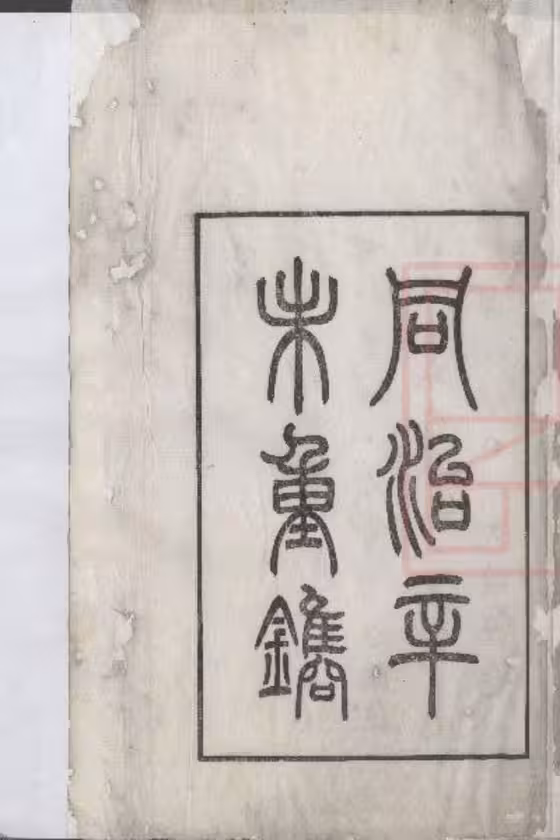 同治辛
未重鐫